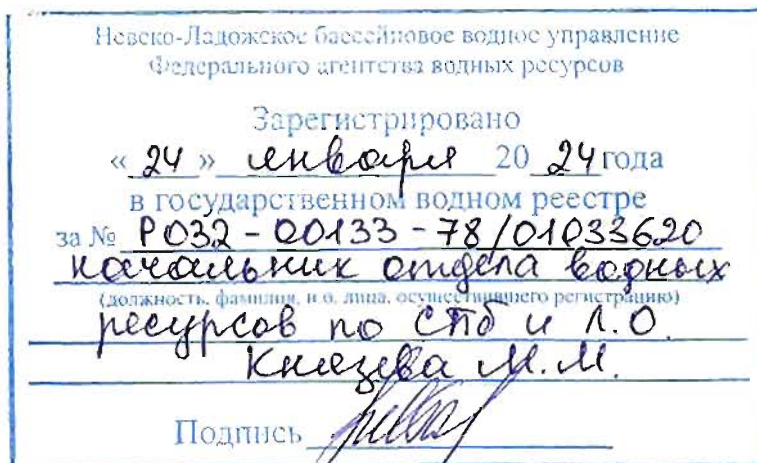 Невско-Ладожское бассейновое водное управление
Федерального агентства водных ресурсов
Зарегистрировано
« 24 » января 20 24 года
в государственном водном реестре
за № Р032-00133-78/01033620
начальник отдела водных
(должность, фамилия, и.о. лица, осуществившего регистрацию)
ресурсов по СПб и Л.О.
Князева М.М.
Подпись